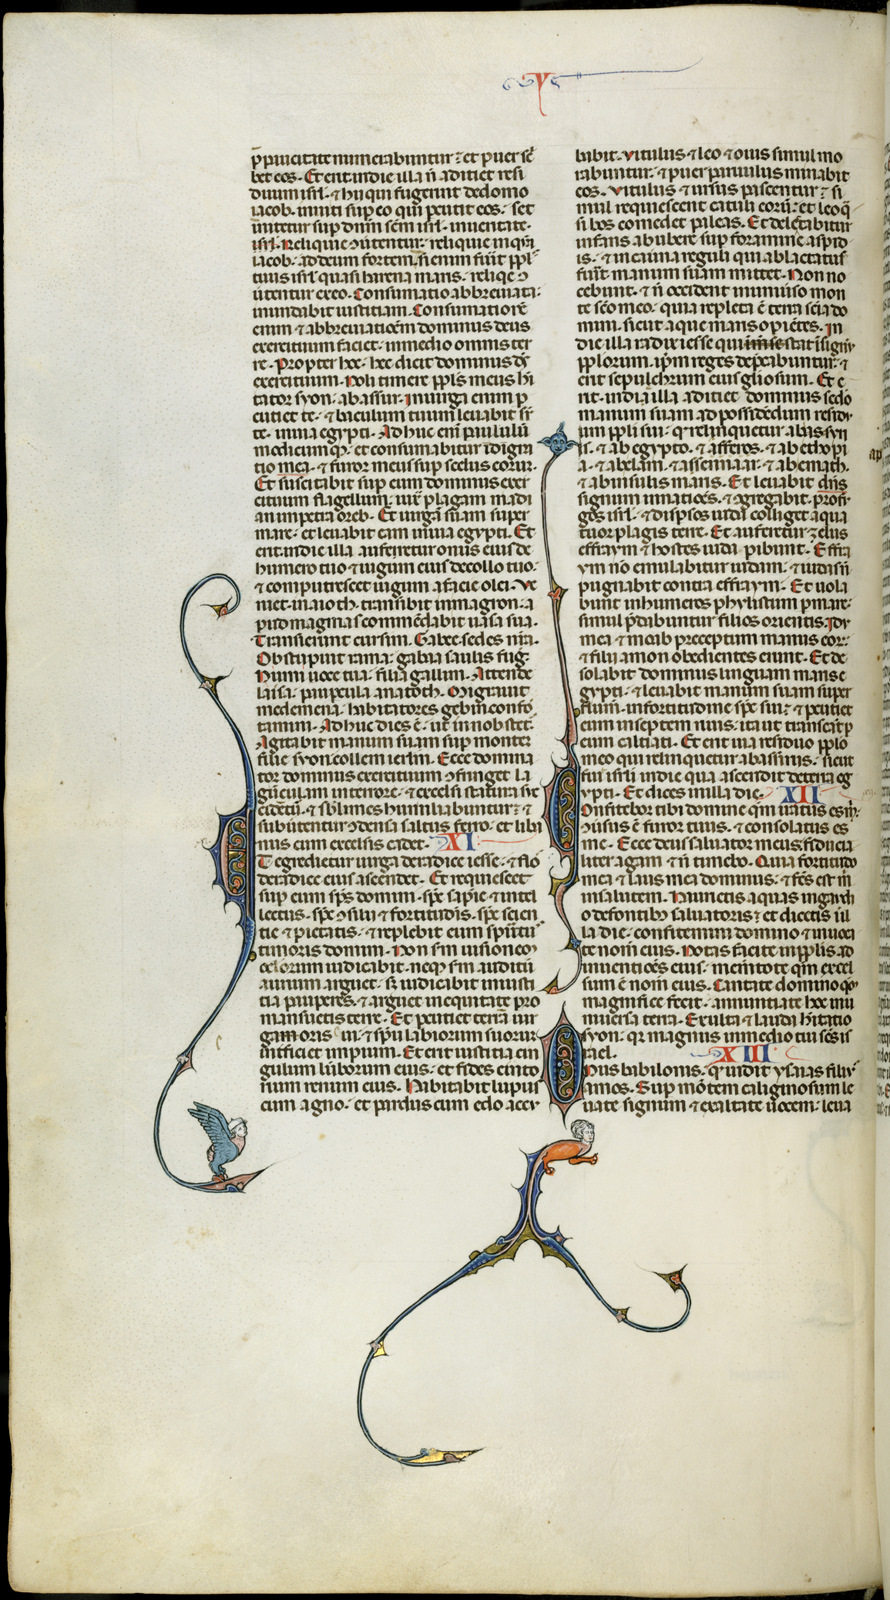 Y
p paucitate numerabuntur et puer sc̄
bet eos. Et erit in die illa n̄ adiciet resi
duum isrl̄. ⁊ hii qui fugerint de domo
iacob. inniti sup eo qui p̄cutit eos. set
innitetur sup dn̄m sc̄m isrl̄. in ueritate.
isrl̄. Reliquie ↄuertentur. reliquie inq̄m
iacob. ad deum fortem. si enim fuīt ppl̄s
tuus isrl̄ quasi harena maris. reliq̄e ↄ
ūtentur ex eo. Consumatio abbreuiata.
inundabit iustitiam. Consumationē
enim ⁊ abbreuiatioēm dominus deus
exercituum faciet. in medio omnis ter
re. Propter hec. hec dicit dominus ds̄
exercituum. Noli timere ppl̄s meus hi
tator syon. ab assur. In uirga enim p
cutiet te. ⁊ baculum tuum leuabit sr̄
te. in uia egypti. Adhuc eni paululū
modicumq. et consumabitur indigna
tio mea. ⁊ furor meus sup scelus eorum.
Et suscitabit sup eum dominus exer
cituum flagellum. iux̄ plagam madi
an in petra oreb. Et uirgā suam super
mare. et leuabit eam in uia egypti. Et
erit in die illa auferetur onus eius de
humero tuo ⁊ iugum eius de collo tuo.
⁊ computrescet iugum a facie olei. Ve
niet in aioth. transibit in magron. a
pud magmas commēdabit uasa sua.
Transierunt cursim. Gabee sedes nrā.
Obstupuit rama. gabaa saulis fug.
Hinni uoce tua. filia gallim. Attende
laisa. paupcula anatoth. Migrauit
medemena. habitatores gebin confor
tamini. Adhuc dies ē. ut in nob stet.
Agitabit manum suam sup montem
filie syon collem ierl̄m. Ecce domina
tor dominus exercituum ↄfringet la
gūculam in terrore. ⁊ excelsi statura suc
cidentur. ⁊ sblimes humiliabuntur. ⁊
subūtentur ↄdensa saltus ferro. et liba
nus cum excelsis cadet. XI
Et egredietur uirga de radice iesse. ⁊ flo
de radice eius ascendet. Et requiescet
sup eum sps̄ domini. sps̄ sapie ⁊ intel
lectus. sps̄ ↄsilii ⁊ fortitudis. sps̄ scien
tie ⁊ pietatis. ⁊ replebit eum spiritus
timoris domini. Non sm̄ uisionem
oculorum iudicabit. neq sm̄ auditū
aurium arguet. s; iudicabit in iusti
tia pauperes. ⁊ arguet in equitate pro
mansuetis terre. Et p̄cutiet terrā uir
ga oris sui. ⁊ spū labiorum suorum
int̄ficiet impium. Et erit iustitia cin
gulum lūborum eius. et fides cincto
rium renum eius. Habitabit lupus
cum agno. et pardus cum edo accu
babit. Vitulus ⁊ leo ⁊ ouis simul mo
rabuntur. ⁊ puer paruulus minabit
eos. Vitulus ⁊ ursus pascentur. si
mul requiescent catuli eorū. et leo q̄
si bos comedet paleas. Et delectabitur
infans ab ubere sup foramine aspid
is. ⁊ in cauīa reguli qui ablactatus
fuīt manum suam mittet. Non no
cebunt. ⁊ n̄ occident in uniuso mon
te sc̄o meo. quia repleta ē terra sc̄ia do
mini. sicut aque maris opientes. In
die illa radix iesse qui stat ī signū
pplorum. ip̄m reges dep̄cabuntur. ⁊
erit sepulchrum eius gl̄iosum. Et e
rit in die illa adiciet dominus scdo
manum suam ad possidēdum residu
um ppli sui. qd̄ relinquetur ab assyri
is. ⁊ ab egypto. ⁊ a fferos. ⁊ ab ethopi
a. ⁊ ab elam. ⁊ a ssennaar. ⁊ ab emath.
⁊ ab insulis maris. Et leuabit dn̄s
signum in natiōes. ⁊ ↄgregabit profu
gos isrl̄. ⁊ dispsos iuda colliget a qua
tuor plagis terre. Et auferetur zelus
effraym ⁊ hostes iuda pibunt. Effra
ym nō emulabitur iudam. ⁊ iudas n̄
pugnabit contra effraym. Et uola
bunt in humeros phylistiim p mare.
simul p̄dabuntur filios orientis. Idu
mea ⁊ moab preceptum manus eor.
⁊ filii amon obedientes erunt. Et de
solabit dominus linguam maris e
gypti. ⁊ leuabit manum suam super
flum. in fortitudine sps̄ sui. ⁊ p̄cutiet
eum in septem riuis. ita ut transeāt p
eum calciati. Et erit uia residuo pplo
meo qui relinquetur ab assiriis. sicut
fuit isrli in die qua ascendit de terra eg
ypti. Et dices in illa die. XII
Confitebor tibi domine qm̄ iratus es m̄.
ↄuisus ē furor tuus. ⁊ consolatus es
me. Ecce deus saluator meus. fiducia
liter agam ⁊ n̄ timebo. Quia fortitudo
mea ⁊ laus mea dominus. ⁊ fcs̄ est m̄
in salutem. Haurietis aquas in gaudi
o de fontibus saluatoris. et dicetis in il
la die. confitemini domino ⁊ inuoca
te nom̄ eius. Notas facite in pplis ad
inuentiōes eius. mem̄tote qm̄ excel
sum ē nom̄ eius. Cantate domino qm̄
magnifice fecit. annuntiate hec in u
niuersa terra. Exulta ⁊ lauda h̄itatio
syon. qr magnus in medio tui sc̄s is
rael. XIII
Onus babilonis. qd̄ uidit ysaias filiꝰ
amos. Sup mōtem caliginosum le
uate signum ⁊ exaltate uocem. leua